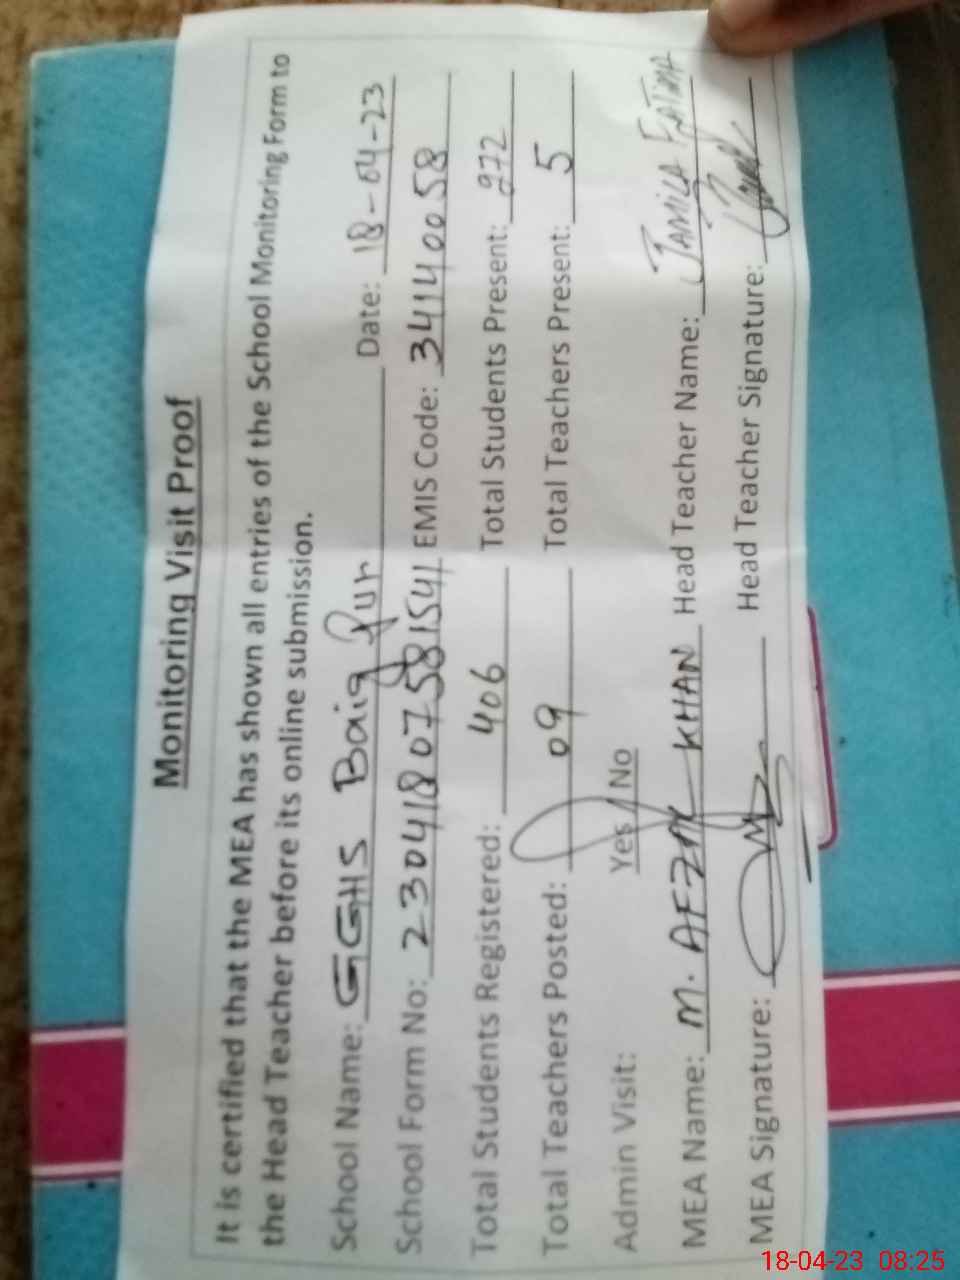 Monitoring Visit Proof
It is certified that the MEA has shown all entries of the School Monitoring Form to
the Head Teacher before its online submission.
School Name: GGHS Baig Pur Date: 18-04-23
School Form No: 230418075881541 EMIS Code: 34140058
Total Students Registered: 406 Total Students Present: 272
Total Teachers Posted: 09 Total Teachers Present: 5
Admin Visit: Yes / No
MEA Name: M. AFZAL KHAN Head Teacher Name: JAMILA FATIMA
MEA Signature: Head Teacher Signature:
18-04-23 08:25